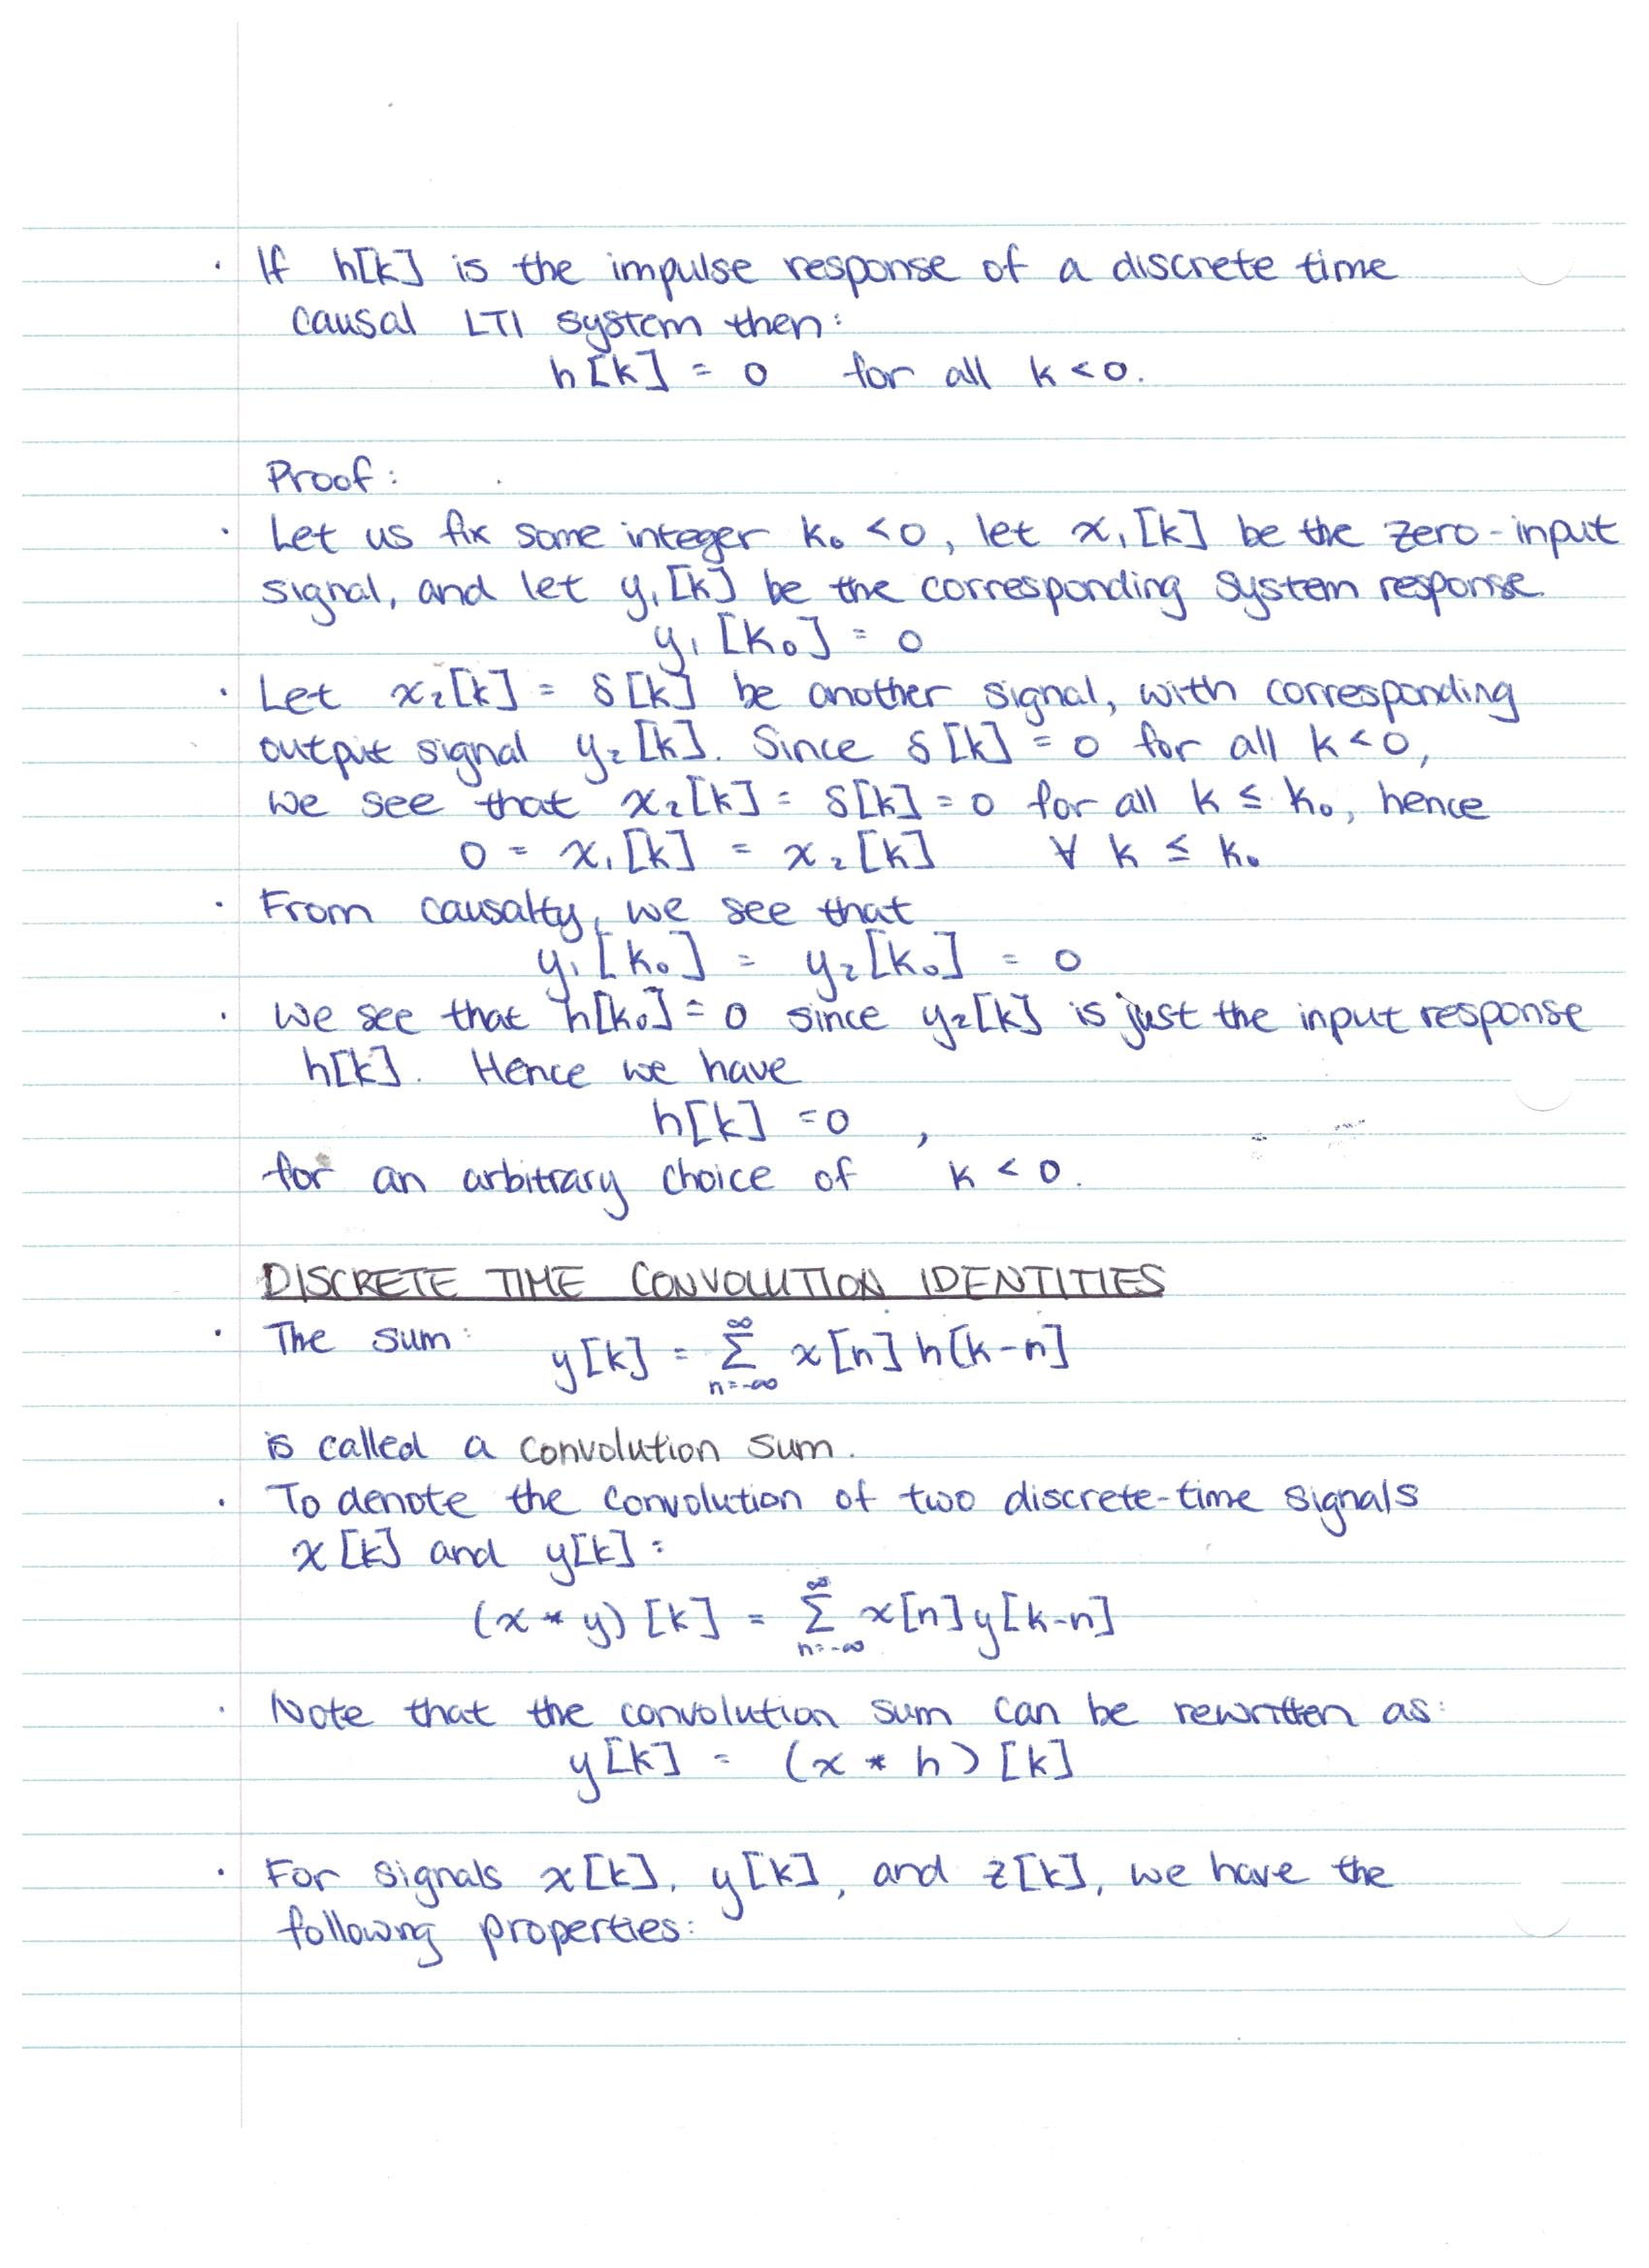 · If h[k] is the impulse response of a discrete time
causal LTI system then:
h[k] = 0 for all k < 0.
Proof:
· Let us fix some integer k₀ < 0, let x₁[k] be the zero-input
signal, and let y₁[k] be the corresponding system response.
y₁[k₀] = 0
· Let x₂[k] = δ[k] be another signal, with corresponding
output signal y₂[k]. Since δ[k] = 0 for all k < 0,
we see that x₂[k] = δ[k] = 0 for all k ≤ k₀, hence
0 = x₁[k] = x₂[k] ∀ k ≤ k₀
· From causalty, we see that
y₁[k₀] = y₂[k₀] = 0
· We see that h[k₀] = 0 since y₂[k] is just the input response
h[k]. Hence we have
h[k] = 0 ,
for an arbitrary choice of k < 0.
DISCRETE TIME CONVOLUTION IDENTITIES
· The sum: y[k] = ∞Σn=-∞ x[n] h[k-n]
is called a convolution sum.
· To denote the convolution of two discrete-time signals
x[k] and y[k]:
(x * y)[k] = ∞Σn=-∞ x[n] y[k-n]
· Note that the convolution sum can be rewritten as:
y[k] = (x * h)[k]
· For signals x[k], y[k], and z[k], we have the
following properties: